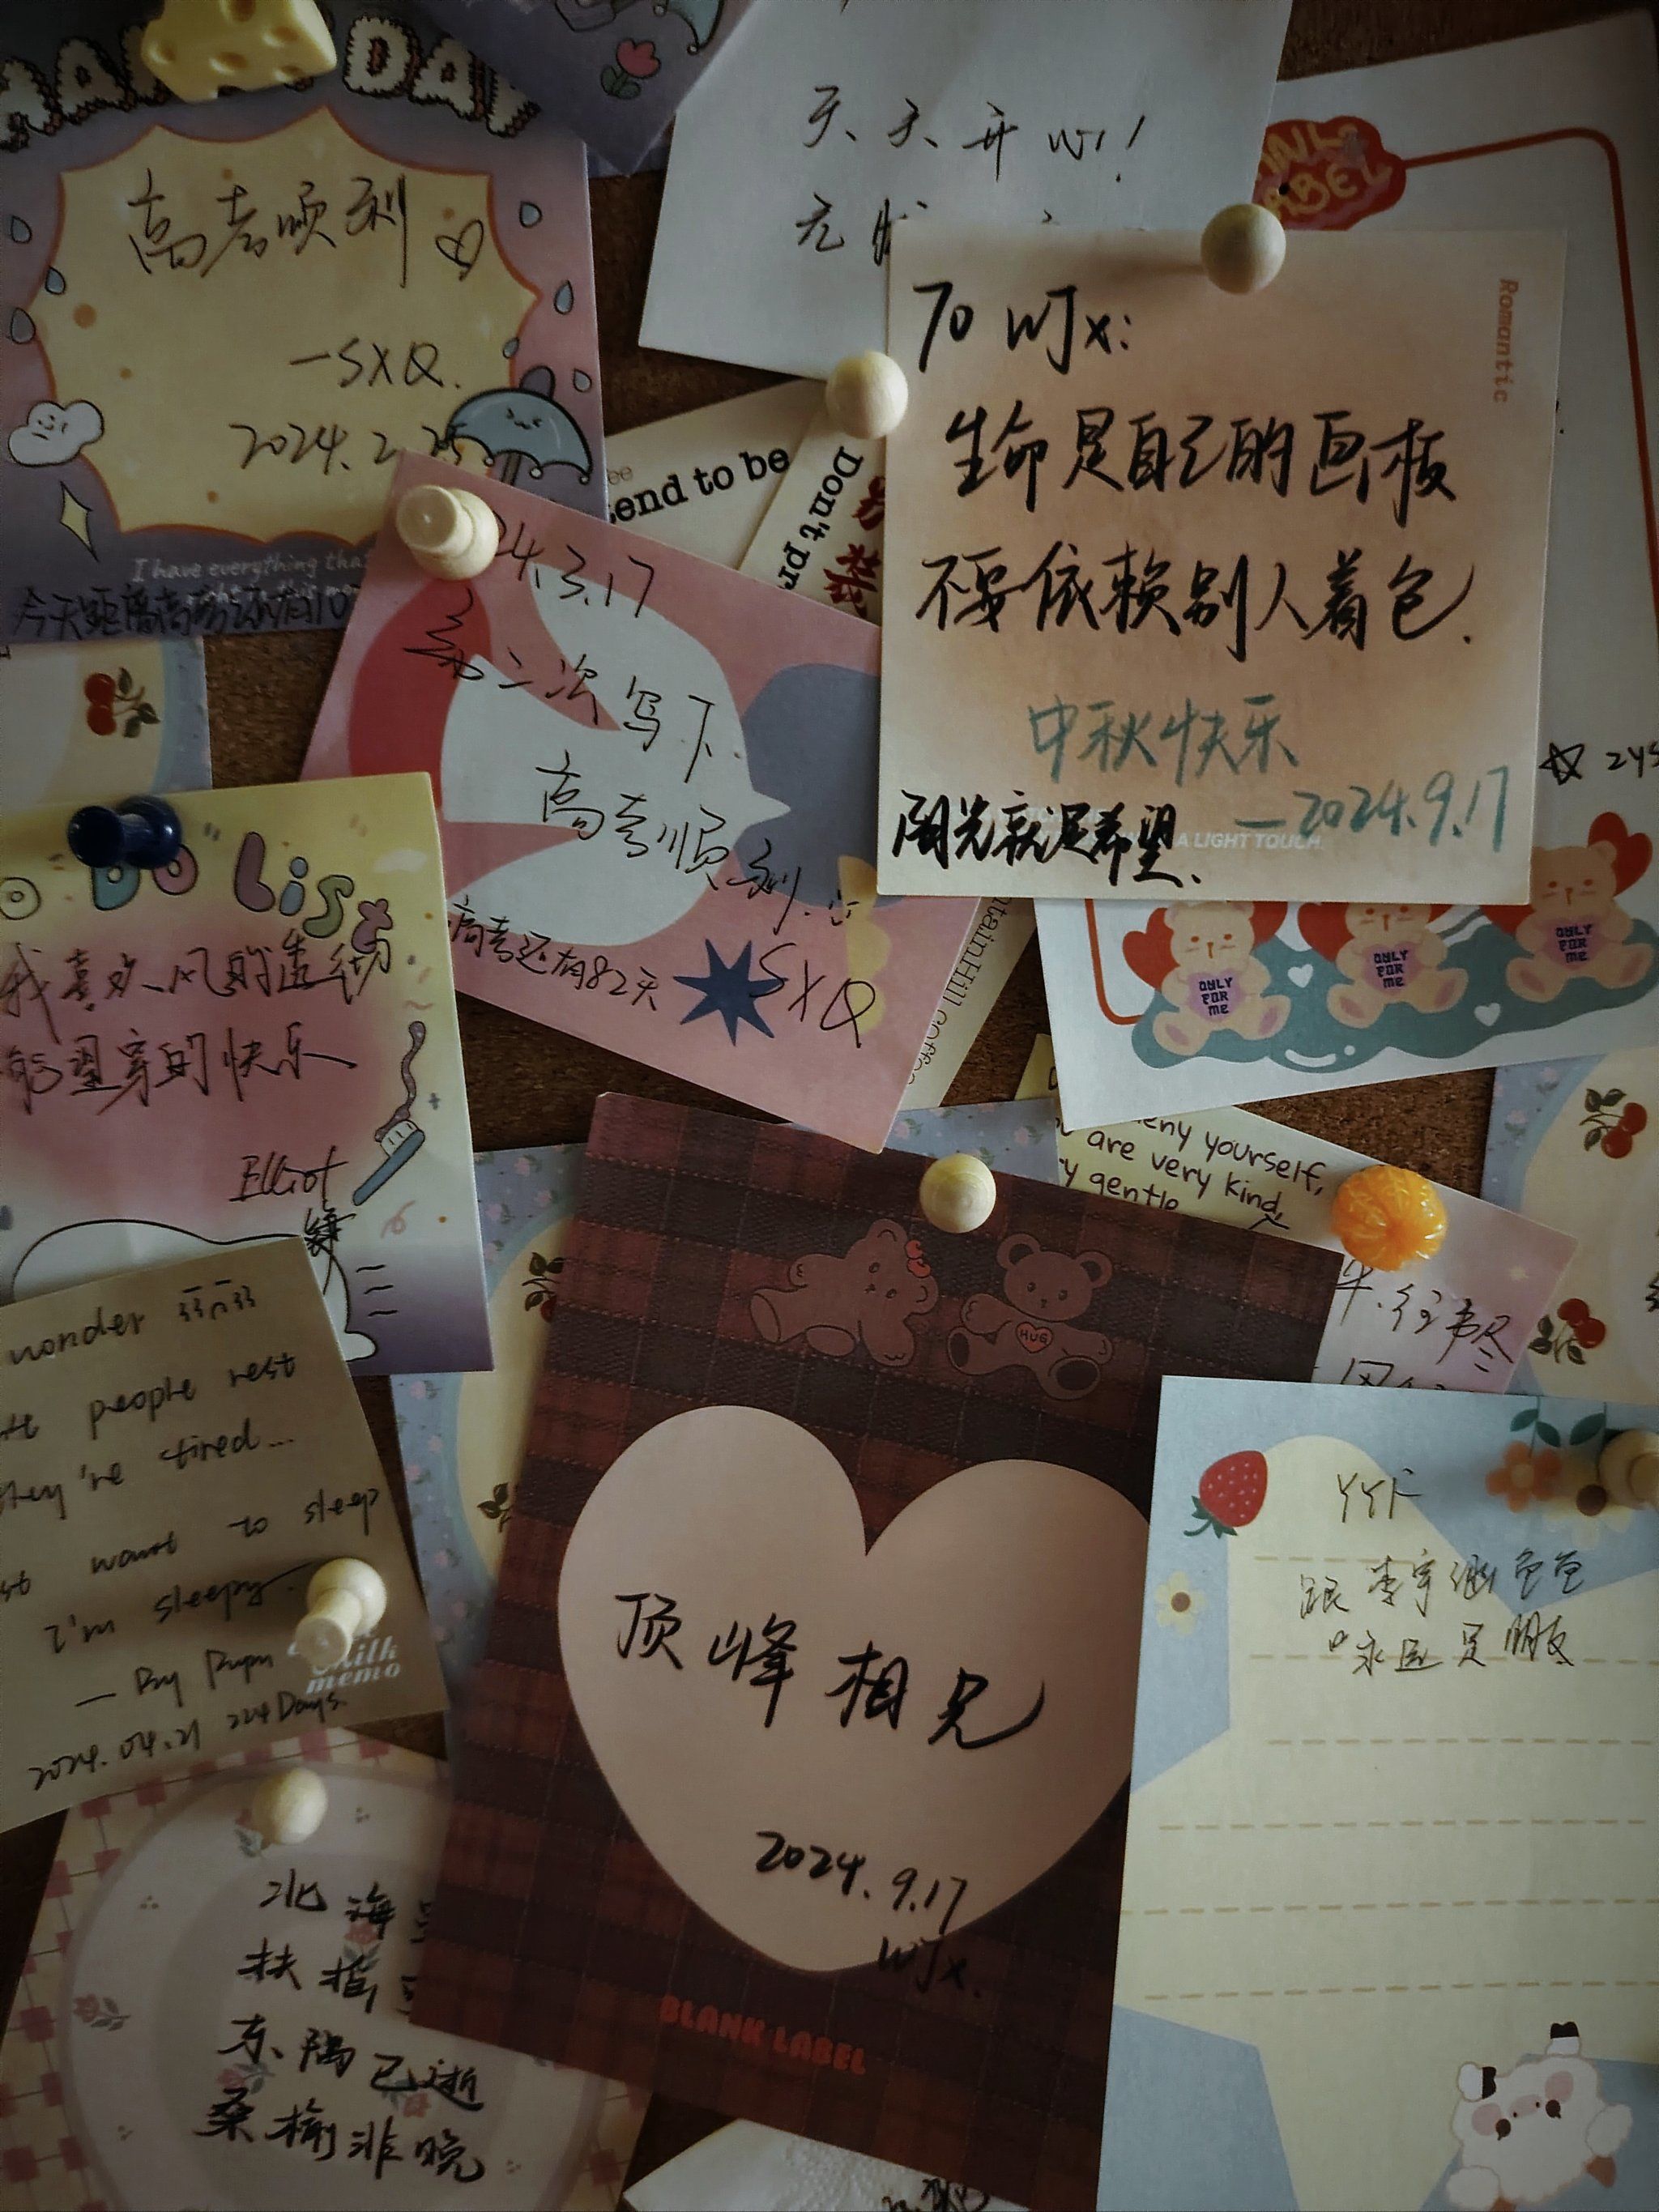 DAY
高考顺利
—SXQ.
2024.2.25
I have everything tha
今天距离高考还有10
天天开心!
无忧
end to be
Don't pr
Romantic
To WJX:
生命是自己的画板
不要依赖别人着色.
中秋快乐
—2024.9.17
阳光就是希望.
A LIGHT TOUCH.
24.3.17
第二次写下
高考顺利.
高考还有82天
SXQ
ntainHill coffee
ONLY FOR me
ONLY FOR me
ONLY FOR me
O DO LiST
我喜欢风的透彻
能望穿的快乐
Elliot
eny yourself,
are very kind,
y gentle
wonder
people rest
they're tired...
want to sleep
I'm sleepy.
— By
milk
memo
2024.04.21 224Days.
HUG
顶峰相见
2024.9.17
WJX.
BLANK LABEL
YYF
跟李宇涵爸爸
永远是朋友
北海
扶摇
东隅已逝
桑榆非晚